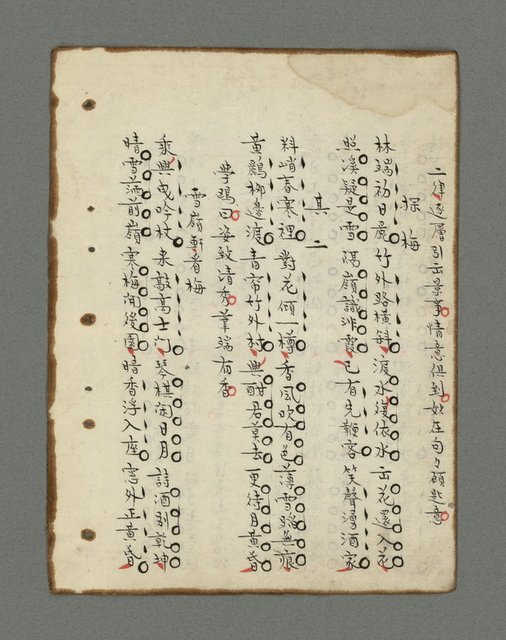 二律逐層引出景事情意俱到妙在句句顧題意
探梅
林端初日麗竹外路橫斜渡水復依水出花還入花
照溪疑是雪隔嶺識非霞已有先競客笑聲灣酒家
其二
料峭春寒裡對花傾一樽香風吹有色薄雪踏無痕
黃鸝柳邊渡青帘竹外村興酣君莫去更待月黃昏
學賜曰姿致清秀筆端有香
雪嶺軒看梅
乘興成吟社來敲高士門琴棋閑日月詩酒別乾坤
晴雪滿前嶺寒梅開後園暗香浮入座窓外正黃昏